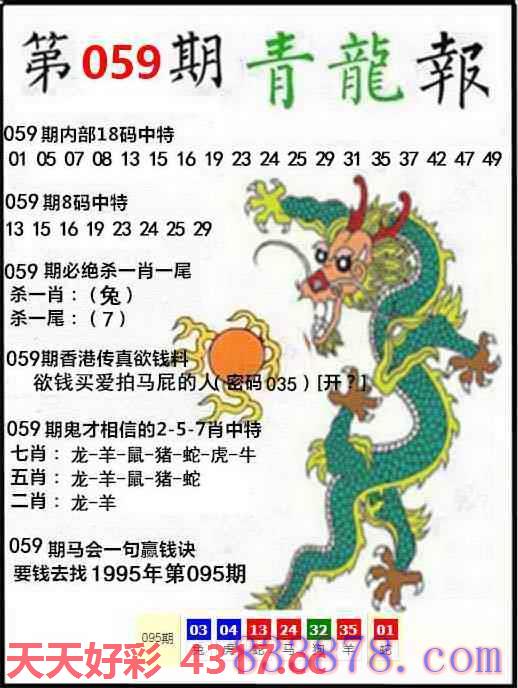 第059期青龍報
059期内部18码中特
01 05 07 08 13 15 16 19 23 24 25 29 31 35 37 42 47 49
059期8码中特
13 15 16 19 23 24 25 29
059 期必绝杀一肖一尾
杀一肖：（兔）
杀一尾：（7）
059期香港传真欲钱料
欲钱买爱拍马屁的人(密码035)[开?]
059期鬼才相信的2-5-7肖中特
七肖：龙-羊-鼠-猪-蛇-虎-牛
五肖：龙-羊-鼠-猪-蛇
二肖：龙-羊
059 期马会一句赢钱诀
要钱去找1995年第095期
095期 03 04 13 24 32 35 01
兔 虎 蛇 马 狗 羊 蛇
天天好彩 4387.cc
838878.com